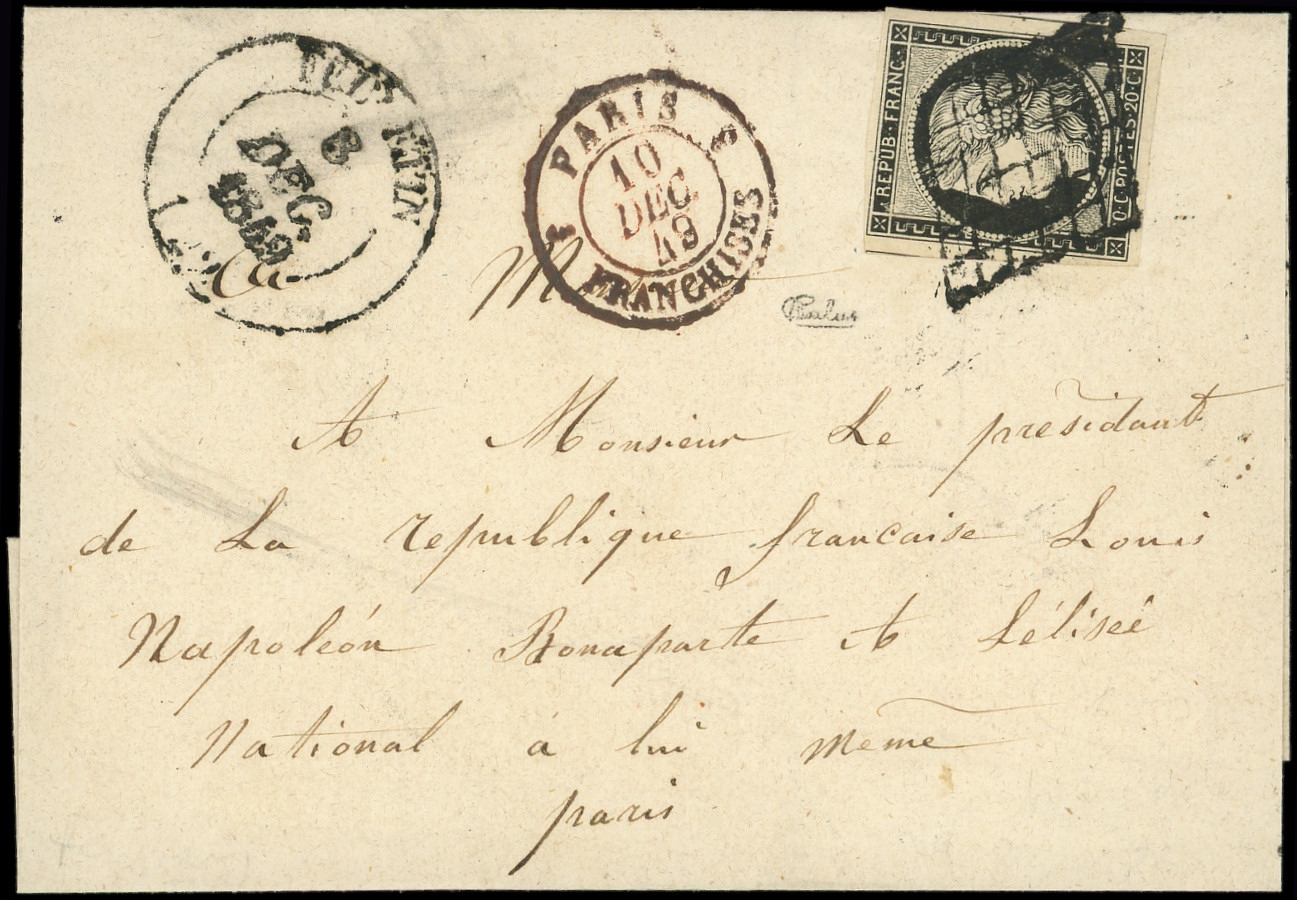 8
DEC.
1849
PARIS
10
DEC.
49
FRANCHISES
REPUB. FRANC.
20.C POSTES 20.C
M
A Monsieur Le présidant
de La republique francaise Louis
Napoléon Bonaparte A Lélisée
National á lui meme
paris